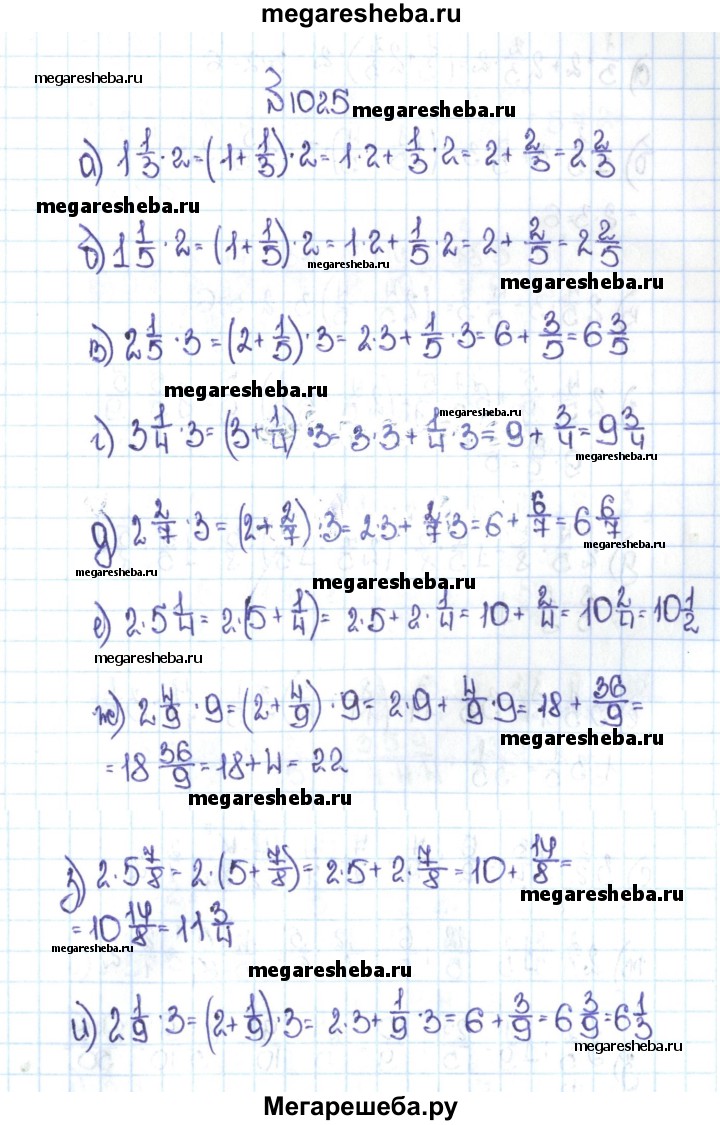 megaresheba.ru
megaresheba.ru
№1025
megaresheba.ru
а) 1 1/3 · 2 = (1 + 1/3) · 2 = 1 · 2 + 1/3 · 2 = 2 + 2/3 = 2 2/3
megaresheba.ru
б) 1 1/5 · 2 = (1 + 1/5) · 2 = 1 · 2 + 1/5 · 2 = 2 + 2/5 = 2 2/5
megaresheba.ru
megaresheba.ru
в) 2 1/5 · 3 = (2 + 1/5) · 3 = 2 · 3 + 1/5 · 3 = 6 + 3/5 = 6 3/5
megaresheba.ru
megaresheba.ru
г) 3 1/4 · 3 = (3 + 1/4) · 3 = 3 · 3 + 1/4 · 3 = 9 + 3/4 = 9 3/4
megaresheba.ru
д) 2 2/7 · 3 = (2 + 2/7) · 3 = 2 · 3 + 2/7 · 3 = 6 + 6/7 = 6 6/7
megaresheba.ru
megaresheba.ru
megaresheba.ru
е) 2 · 5 1/4 = 2 · (5 + 1/4) = 2 · 5 + 2 · 1/4 = 10 + 2/4 = 10 2/4 = 10 1/2
megaresheba.ru
ж) 2 4/9 · 9 = (2 + 4/9) · 9 = 2 · 9 + 4/9 · 9 = 18 + 36/9 =
megaresheba.ru
= 18 36/9 = 18 + 4 = 22
megaresheba.ru
з) 2 · 5 7/8 = 2 · (5 + 7/8) = 2 · 5 + 2 · 7/8 = 10 + 14/8 =
megaresheba.ru
= 10 14/8 = 11 3/4
megaresheba.ru
megaresheba.ru
и) 2 1/9 · 3 = (2 + 1/9) · 3 = 2 · 3 + 1/9 · 3 = 6 + 3/9 = 6 3/9 = 6 1/3
megaresheba.ru
Мегарешеба.ру